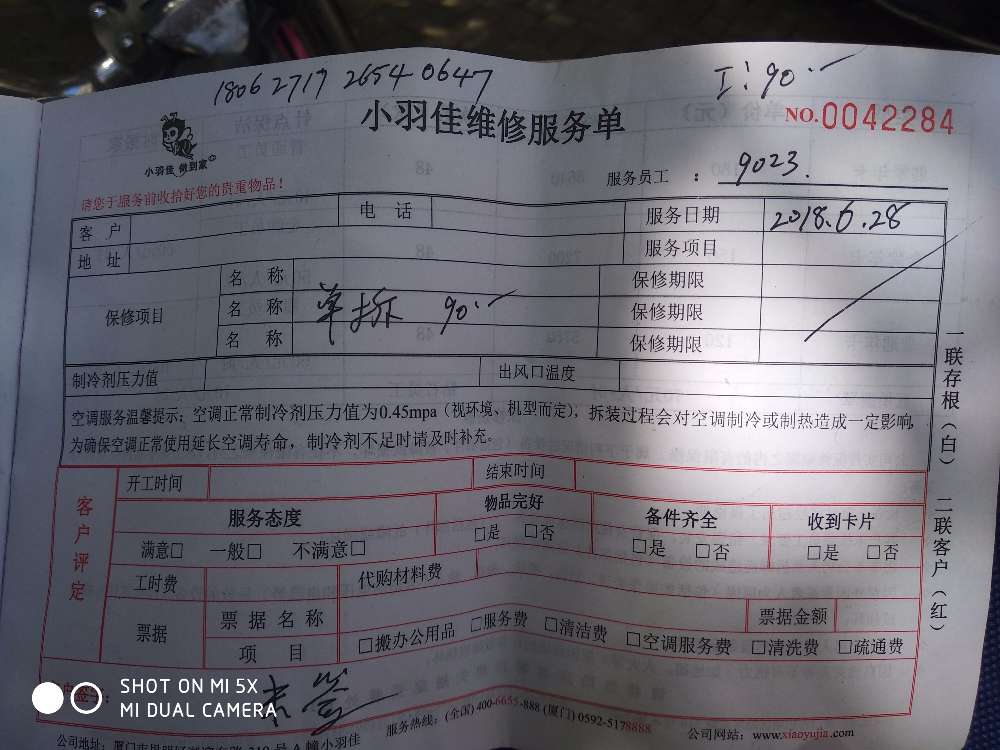 1806 2717 2654 0647
I: 90.
小羽佳维修服务单
NO.0042284
小羽佳 做到家
请您于服务前收拾好您的贵重物品！
服务员工 ： 9023.
客 户 电 话 服务日期 2018.6.28
地 址 服务项目
保修项目
名 称 保修期限
名 称 单拆 90. 保修期限
名 称 保修期限
制冷剂压力值 出风口温度
空调服务温馨提示：空调正常制冷剂压力值为0.45mpa（视环境、机型而定），拆装过程会对空调制冷或制热造成一定影响，
为确保空调正常使用延长空调寿命，制冷剂不足时请及时补充。
一联存根（白） 二联客户（红）
客户评定
开工时间 结束时间
服务态度 物品完好 备件齐全 收到卡片
满意□ 一般□ 不满意□ □是 □否 □是 □否 □是 □否
工时费 代购材料费
票据 票据名称 票据金额
项 目 □搬办公用品 □服务费 □清洁费 □空调服务费 □清洗费 □疏通费
服务热线：(全国) 400-6655-888 (厦门) 0592-5178888
公司网站：www.xiaoyujia.com
公司地址：厦门市
SHOT ON MI 5X
MI DUAL CAMERA